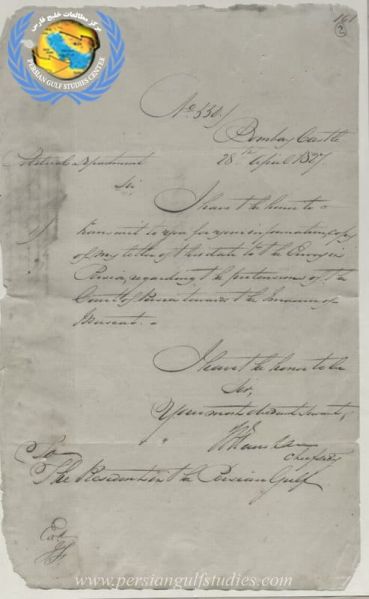 مرکز مطالعات خلیج فارس
PERSIAN GULF STUDIES CENTER
161
2
No. 550
Bombay Castle
28th April 1827
Department
Sir,
I have the honor to
transmit to you for your information copy
of my letter of this date to the Envoy in
Persia, regarding the pretensions of the
Court of Persia towards the Imaum of
Muscat.
I have the honor to be
Sir,
Your most obedient servant,
Chief Secy
To
The Resident in the Persian Gulf
www.persiangulfstudies.com